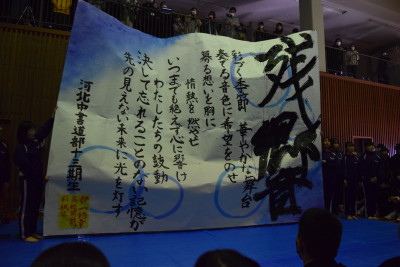 残響
動く季節 華やかな舞台
奏でる音色に希望をのせ
募る想いを胸に
情熱を燃やせ
いつまでも絶えず心に響け
わたしたちの鼓動
決して忘れることのない記憶が
先の見えない未来に光を灯す
河北中書道部十三期生